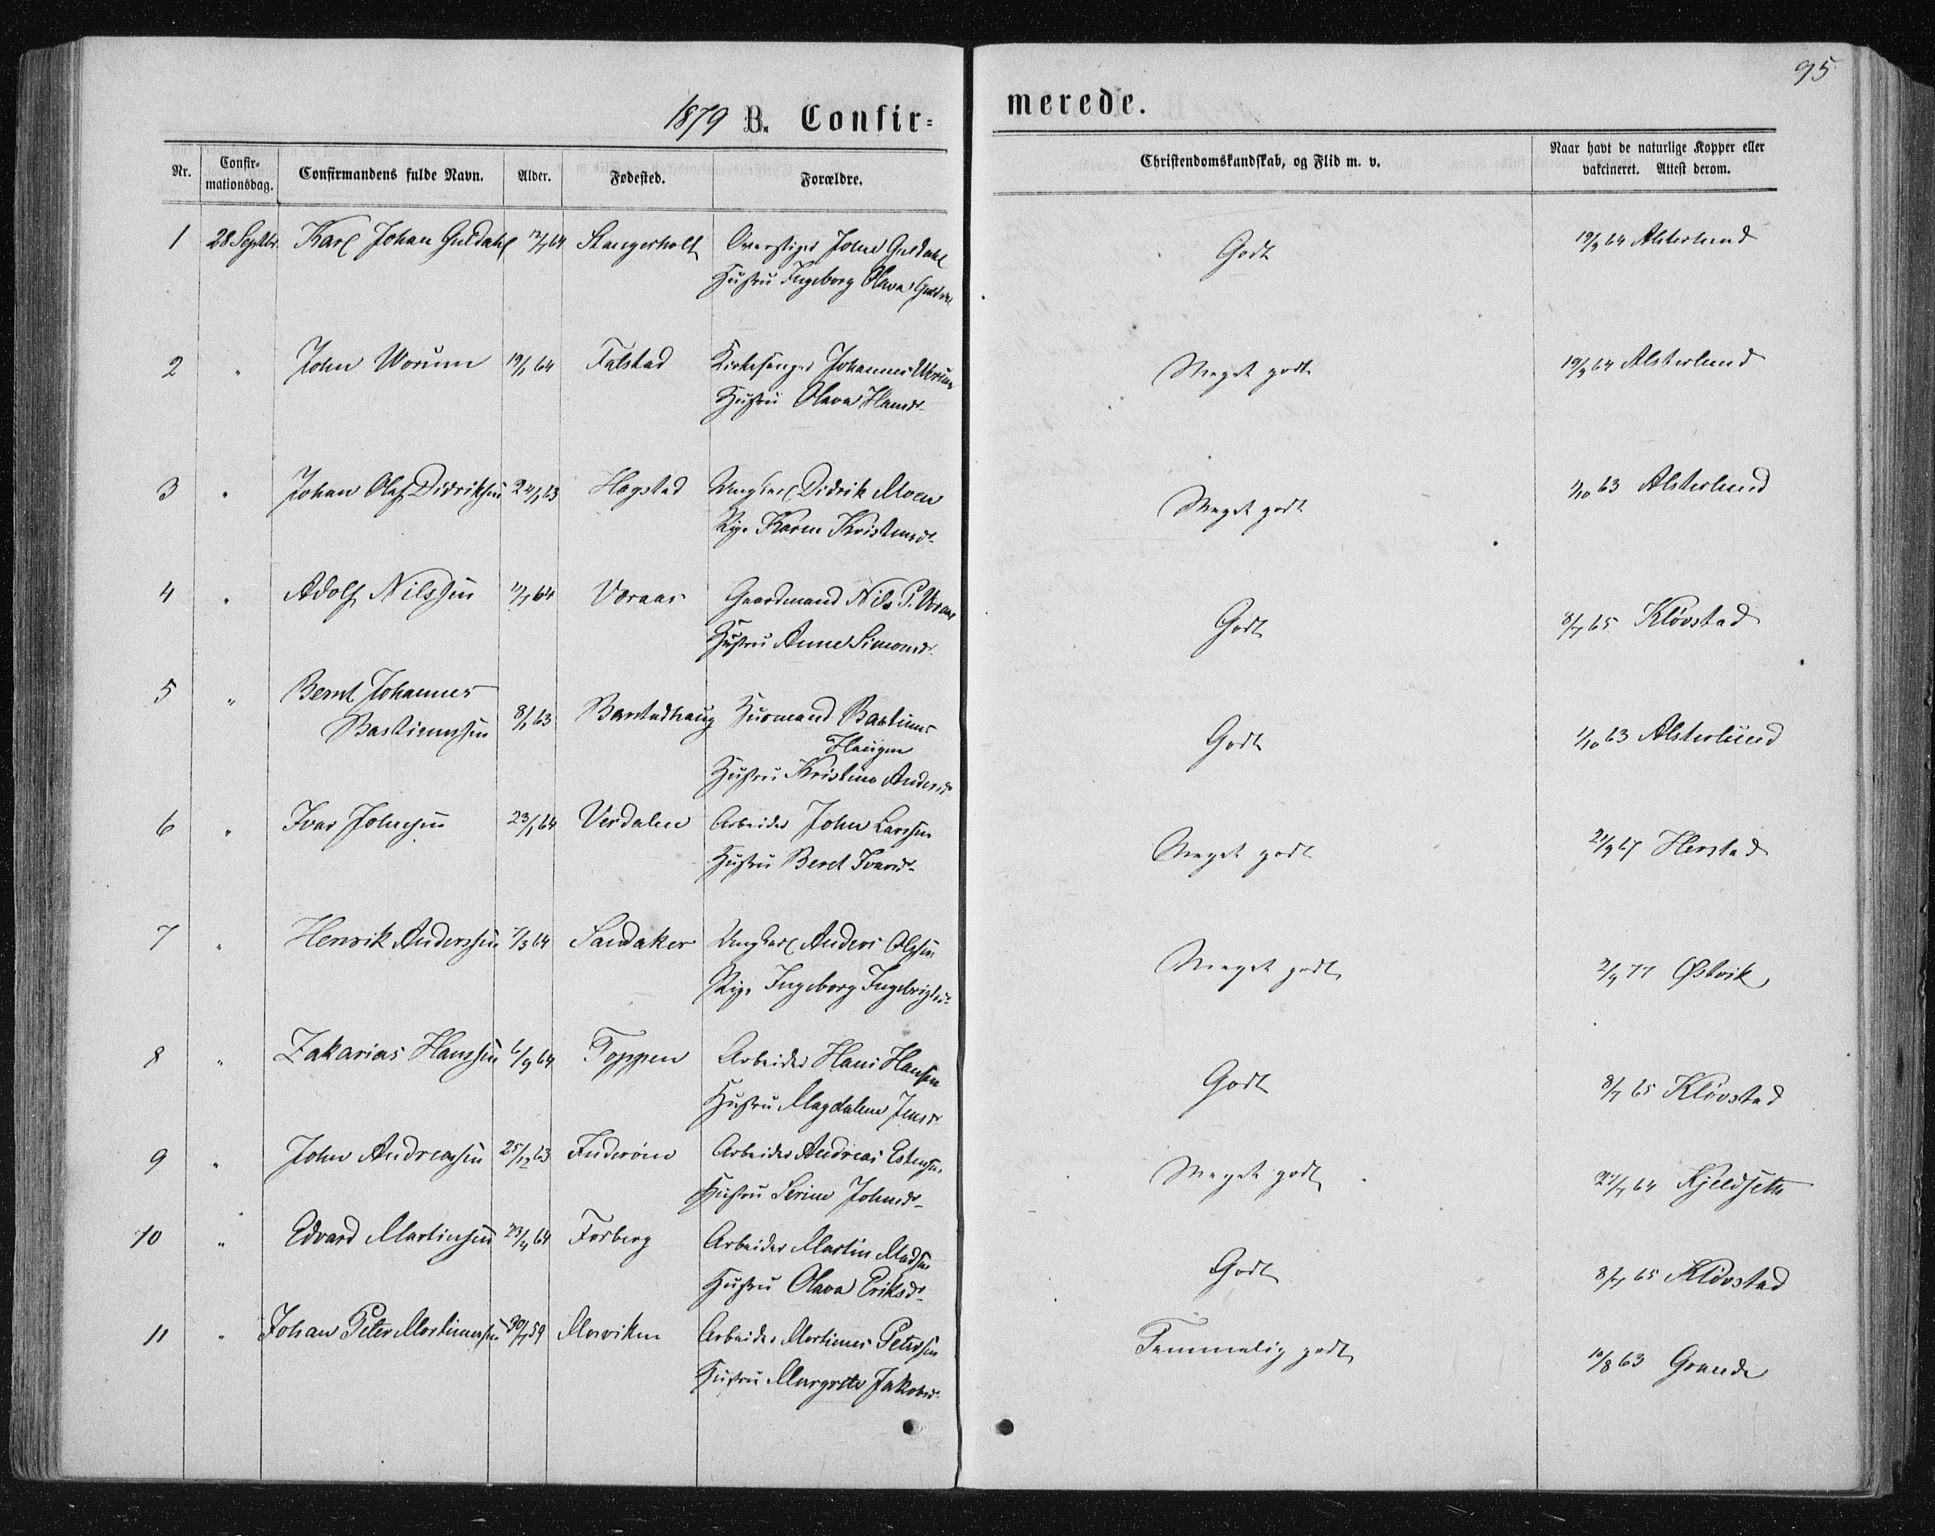 95
1879 B. Confir-
merede.
Nr. Confir-mationsdag. Confirmandens fulde Navn. Alder. Fødested. Forældre.
Christendomskundskab, og Flid m. v. Naar havt de naturlige Kopper eller vakcineret. Attest derom.
1 28 Septbr. Karl Johan Guldahl 12/7 64 Stangerholt Overstiger John Guldahl
Hustru Ingeborg Olava
Godt 19/9 64 Alsterlund
2 " John Worum 19/1 64 Falstad Kirkesanger Johannes Worum
Hustru Olava Hansdr.
Meget godt 19/9 64 Alsterlund
3 " Johan Olaf Didriksen 24/1 63 Hogstad Ungkarl Didrik Moen
Pige Karen Kristensdr.
Meget godt 1/10 63 Alsterlund
4 " Adolf Nilssen 11/7 64 Voraas Gaardmand Nils P. Voraas
Hustru Anne Simonsdr.
Godt 8/7 65 Kløvstad
5 " Bernt Johannes
Bastianussen 8/1 63 Barstadhaug Husmand
Haugen
Hustru Kristine Andersdr.
Godt 1/10 63 Alsterlund
6 " Ivar Johnsen 23/1 64 Verdalen Arbeider John Larssen
Hustru Beret Ivarsdr.
Meget godt 21/9 67 Herstad
7 " Henrik Anderssen 7/3 64 Sandaker Ungkarl Anders Olssen
Pige Ingeborg Ingebrigtsdr.
Meget godt 2/9 77 Østvik
8 " Zakarias Hanssen 6/9 64 Toppen Arbeider Hans Hansen
Hustru Magdalene Jensdr.
Godt 8/7 65 Kløvstad
9 " John Andreassen 25/12 63 Inderøen Arbeider Andreas Estensen
Hustru Serine Johnsdr.
Meget godt 21/7 64 Kjeldseth
10 " Edvard Martinsen 23/4 64 Forberg Arbeider Martin Madsen
Hustru Olava Eriksdr.
Godt 8/7 65 Kløvstad
11 " Johan Peter Mortinussen 30/7 59 Morviken Arbeider Mortinus Petersen
Hustru Margrete Jakobsdr.
Temmelig godt 10/8 63 Grande